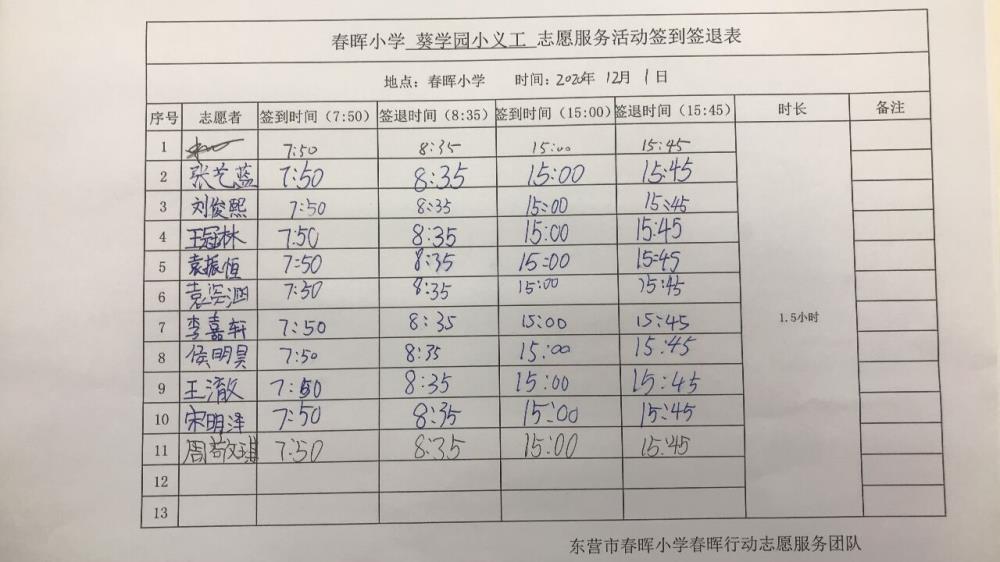 春晖小学 葵学园小义工 志愿服务活动签到签退表
地点：春晖小学 时间：2020年 12月 1日
序号 志愿者 签到时间（7:50） 签退时间（8:35） 签到时间（15:00） 签退时间（15:45） 时长 备注
1 7:50 8:35 15:00 15:45
2 张艺蓝 7:50 8:35 15:00 15:45
3 刘俊熙 7:50 8:35 15:00 15:45
4 王冠林 7:50 8:35 15:00 15:45
5 袁振恒 7:50 8:35 15:00 15:45
6 袁 7:50 8:35 15:00 15:45
7 李嘉轩 7:50 8:35 15:00 15:45
1.5小时
8 侯明昊 7:50 8:35 15:00 15:45
9 王澈 7:50 8:35 15:00 15:45
10 宋明泽 7:50 8:35 15:00 15:45
11 周敬琪 7:50 8:35 15:00 15:45
12
13
东营市春晖小学春晖行动志愿服务团队